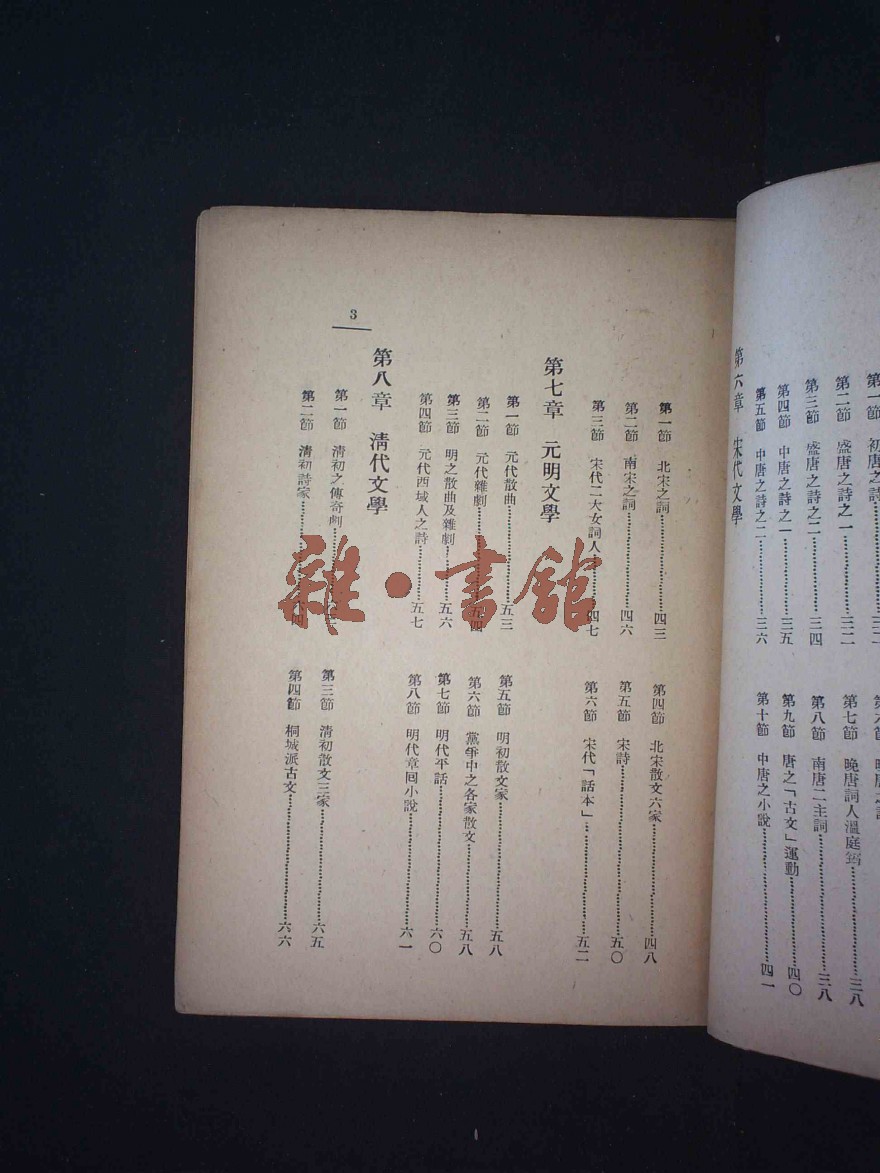 第二節 盛唐之詩之一……三二
第三節 盛唐之詩之二……三四
第四節 中唐之詩之一……三五
第五節 中唐之詩之二……三六
第七節 晚唐詞人溫庭筠……三八
第八節 南唐二主詞……三八
第九節 唐之「古文」運動……四〇
第十節 中唐之小說……四一
第六章 宋代文學
第一節 北宋之詞……四三
第二節 南宋之詞……四六
第三節 宋代二大女詞人……四七
第四節 北宋散文六家……四八
第五節 宋詩……五〇
第六節 宋代「話本」……五二
第七章 元明文學
第一節 元代散曲……五三
第二節 元代雜劇……五四
第三節 明之散曲及雜劇……五六
第四節 元代西域人之詩……五七
第五節 明初散文家……五八
第六節 黨爭中之各家散文……五八
第七節 明代平話……六〇
第八節 明代章囘小說……六一
第八章 淸代文學
第一節 淸初之傳奇劇……
第二節 淸初詩家……六四
第三節 淸初散文三家……六五
第四節 桐城派古文……六六
3
雜·書館